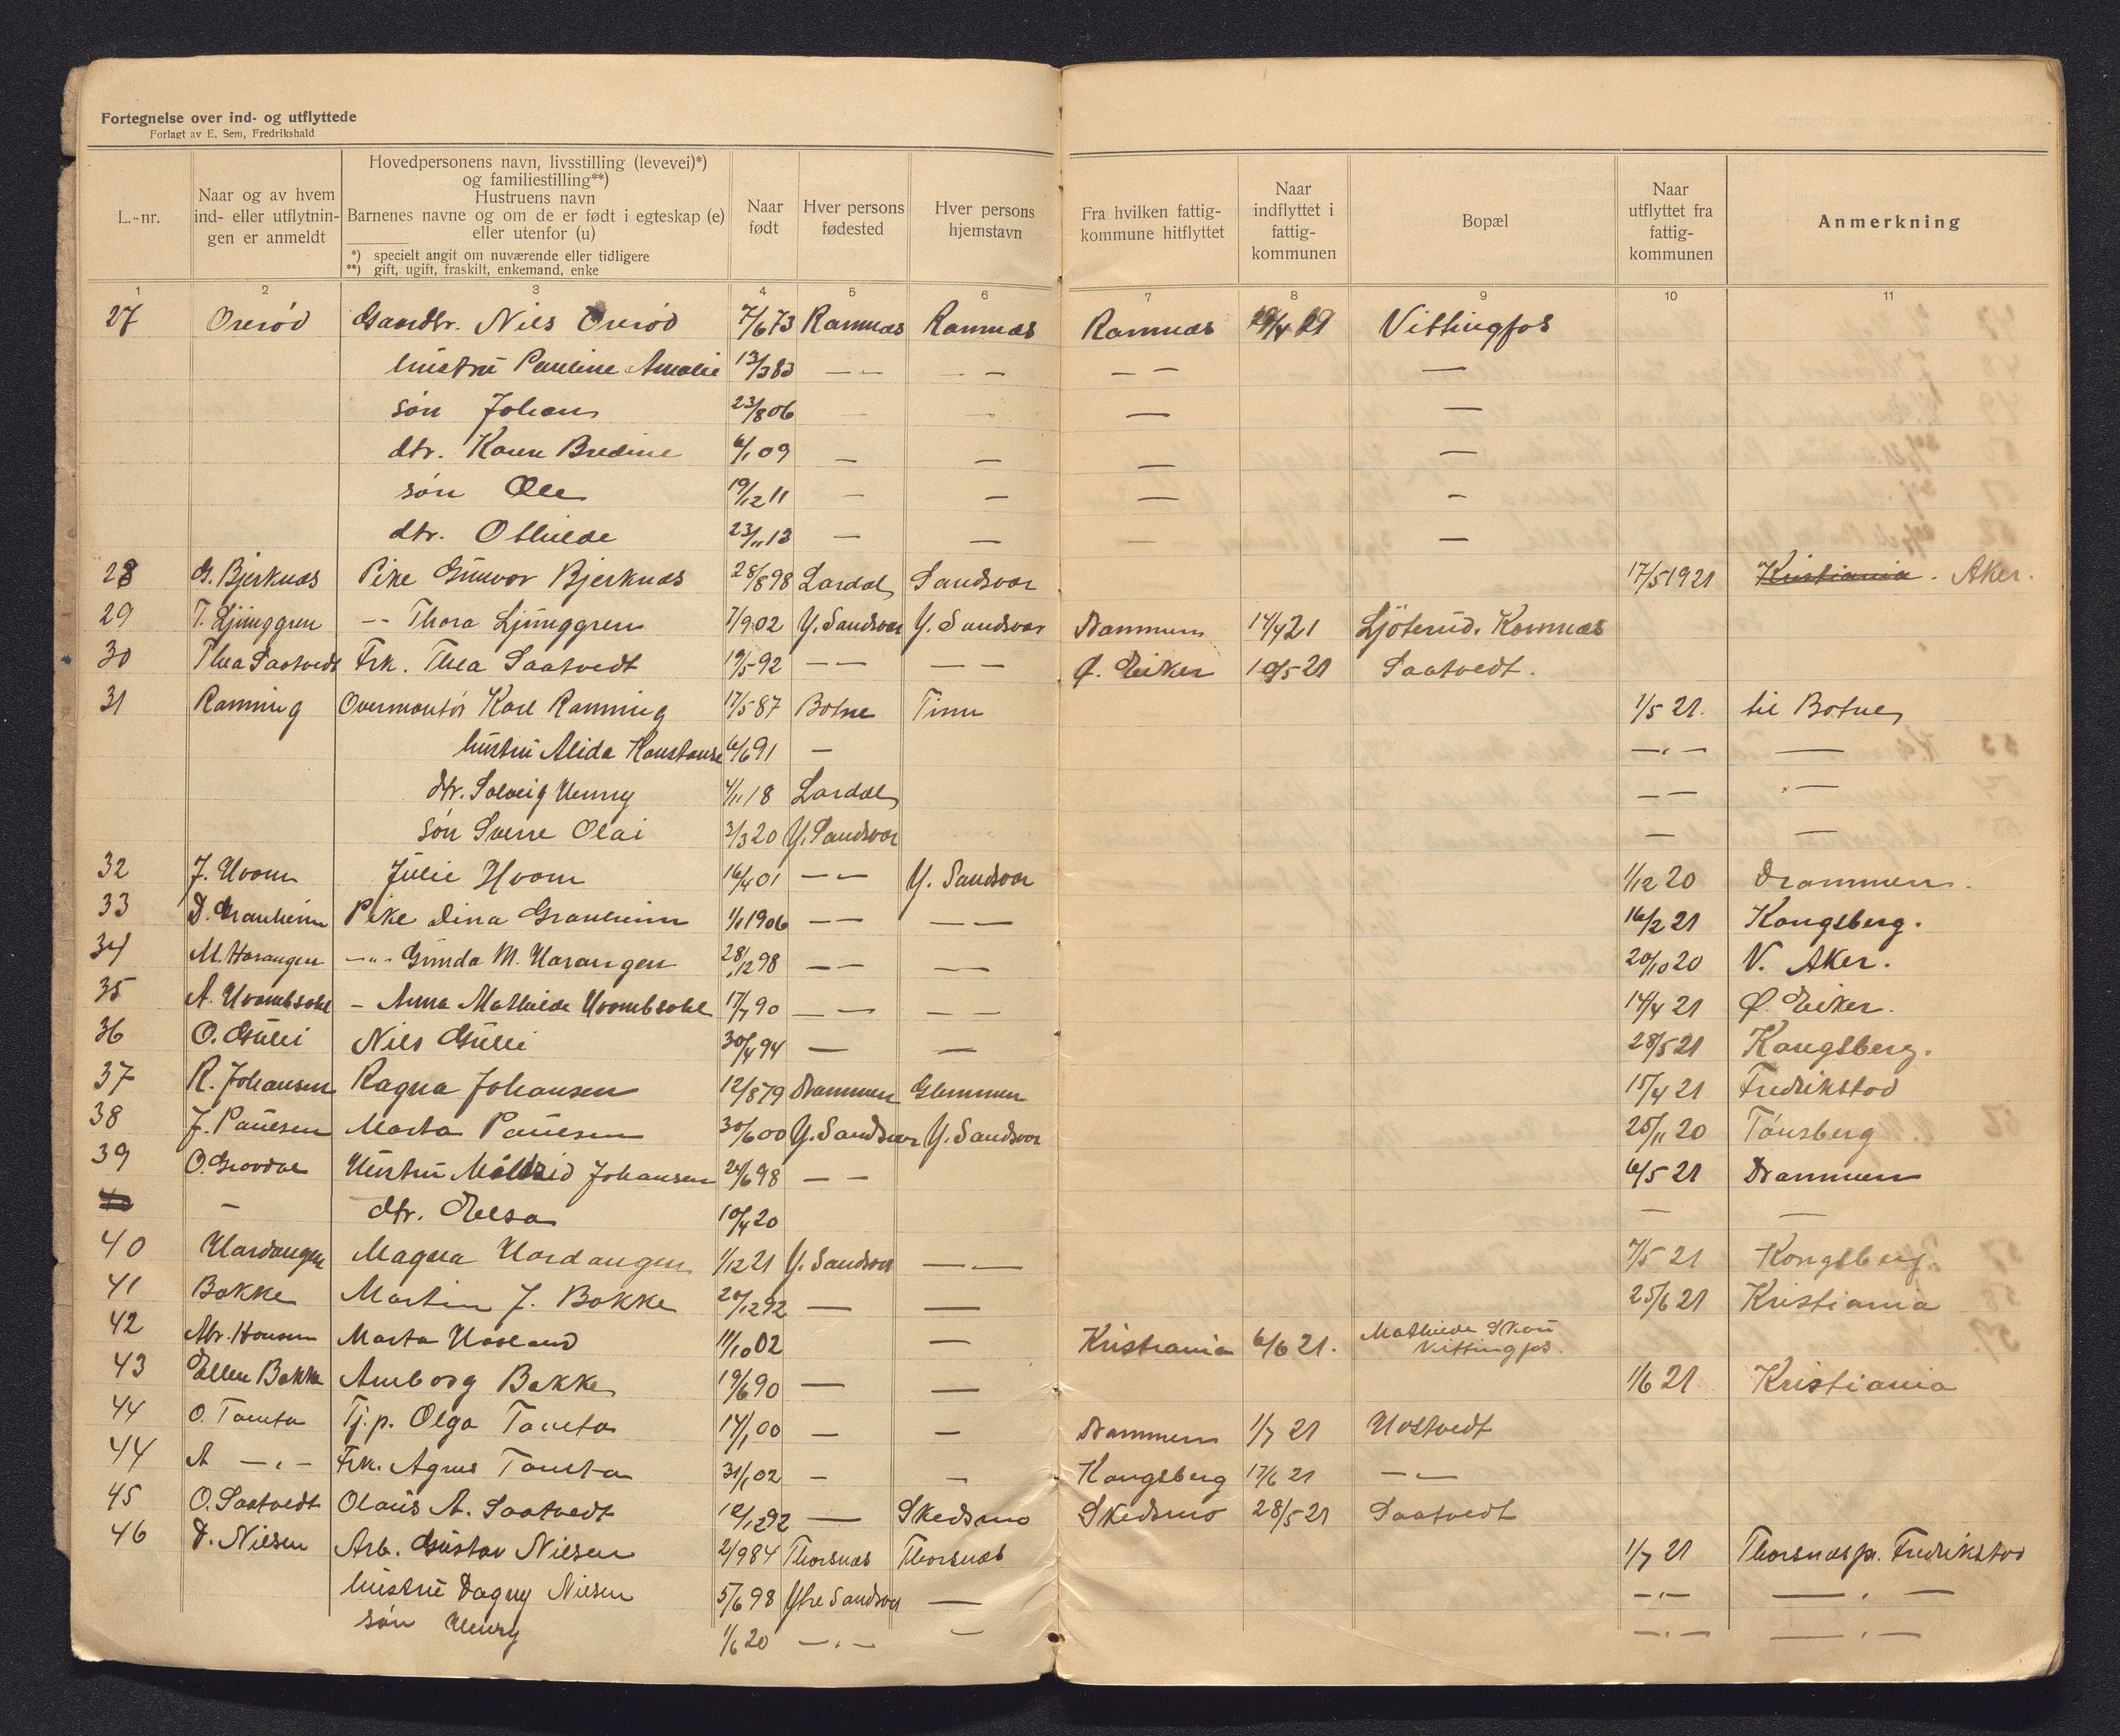 Fortegnelse over ind- og utflyttede
Forlagt av E. Sem, Fredrikshald
L.-nr.
Naar og av hvem
ind- eller utflytnin-
gen er anmeldt
Hovedpersonens navn, livsstilling (levevei)*)
og familiestilling**)
Hustruens navn
Barnenes navne og om de er født i egteskap (e)
eller utenfor (u)
*) specielt angit om nuværende eller tidligere
**) gift, ugift, fraskilt, enkemand, enke
Naar
født
Hver persons
fødested
Hver persons
hjemstavn
Fra hvilken fattig-
kommune hitflyttet
Naar
indflyttet i
fattig-
kommunen
Bopæl
Naar
utflyttet fra
fattig-
kommunen
Anmerkning
1 2 3 4 5 6 7 8 9 10 11
27 Orerød Gaardbr. Nils Orerød 7/6 73 Ramnæs Ramnæs Ramnæs Vittingfos
hustru Pauline Amalie 13/3 83 — — — — — — —
søn Johan 23/8 06 — — — —
dtr. Karen Bredine 6/1 09 — — — —
søn Ole 19/12 11 — — — —
dtr. Othilde 23/11 13 — — — —
28 G. Bjerknæs Pike Gunvor Bjerknæs 28/8 98 Lardal Sandsvær 17/5 1921 Kristiania. Aker.
29 T. Ljunggren -- Thora Ljunggren 7/9 02 Y. Sandsvær Y. Sandsvær Drammen 14/4 21 Ljøterud. Komnæs
30 Thea Saatvedt Frk. Thea Saatvedt 19/5 92 — — — — Ø. Eiker 10/5 21 Saatvedt.
31 Ramming Overmontør Karl Ramming 17/5 87 Botne Tinn 1/5 21. til Botne
hustru Alida Konstanse 6/6 91 — —.— —
dtr. Solveig Henny 4/11 18 Lardal — — . —
søn Sverre Olai 3/3 20 Y. Sandsvær — —
32 J. Hvam Julie Hvam 16/4 01 — — Y. Sandsvær 1/12 20 Drammen.
33 D. Granheim Pike Dina Granheim 1/1 1906 — — — — 16/2 21 Kongsberg.
34 M. Harangen —"— Gunda M. Harangen 28/12 98 — — — — 20/10 20 V. Aker.
35 - Anna Mathilde 17/7 90 — — — — 14/4 21 Ø. Eiker.
36 O. Gulli Nils Gulli 30/4 94 — — 28/5 21 Kongsberg.
37 R. Johansen Ragna Johansen 12/8 79 Drammen Glemmen 15/4 21 Fredrikstad
38 J. Paulsen Marta Paulsen 30/6 00 Y. Sandsvær Y. Sandsvær 25/11 20 Tønsberg
39 O. Grovdal Hustru Målfrid Johansen 24/6 98 — — 6/5 21 Drammen
— dtr. Elsa 10/4 20 — —
40 Hardangen Magna Hardangen 1/12 21 Y. Sandsvær —.— 7/5 21 Kongsberg.
41 Bakke Martin J. Bakke 20/12 92 — — 25/6 21 Kristiania
42 Abr. Hansen Marta Haoland 11/10 02 — Kristiania 6/6 21. Mathilde Skou
Vittingfos.
43 Ellen Bakke Amborg Bakke 19/6 90 — — 1/6 21 Kristiania
44 O. Tamta Tj.p. Olga Tamta 14/1 00 — — Drammen 1/7 21 Hostvedt
44 A —.— Frk. Agnes Tamta 31/1 02 — — Kongsberg 17/6 21 — —
45 O. Saatvedt Olaus A. Saatvedt 12/12 92 — Skedsmo Skedsmo 28/5 21 Saatvedt
46 D. Nilsen Arb. Gustav Nilsen 2/9 84 Thorsnæs Thorsnæs 1/7 21 Thorsnæs pr. Fredrikstad
hustru Dagny Nilsen 5/6 98 Ytre Sandsvær — —.— —.—
søn Henry 1/6 20 —.— — —.— —.—